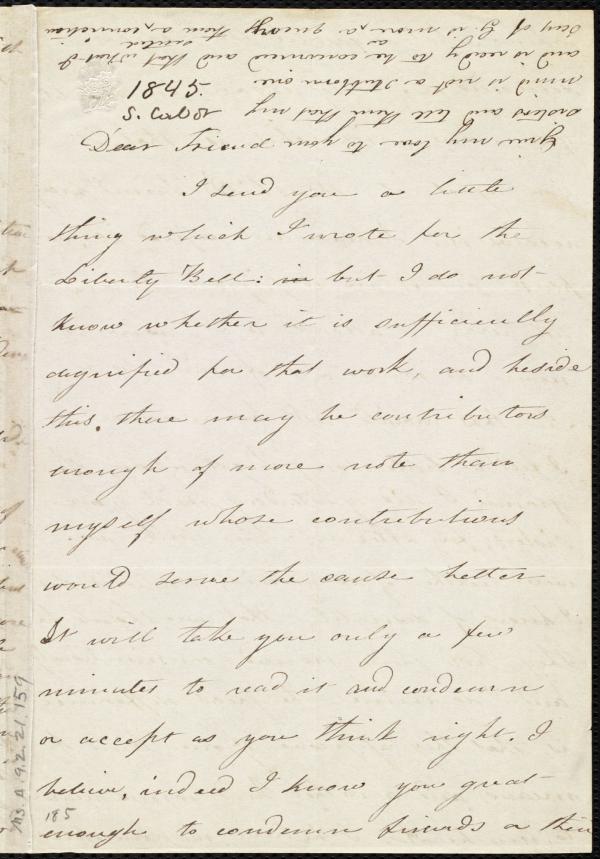 Give my love to your
sisters and tell them that my
mind is not a stubborn one.
and is ready to be convinced and that what I
say of G. is more a query than a conviction
1845.
S. Cabot
Dear Friend
I send you a little
thing which I wrote for the
Liberty Bell: in but I do not
know whether it is sufficiently
dignified for that work, and beside
this, there may be contributors
enough of more note than
myself whose contributions
would serve the cause better
It will take you only a few
minutes to read it and condemn
or accept as you think right. I
believe, indeed I know you great
enough to condemn friends or their
Ms. A. 9. 2. 21. 159
185